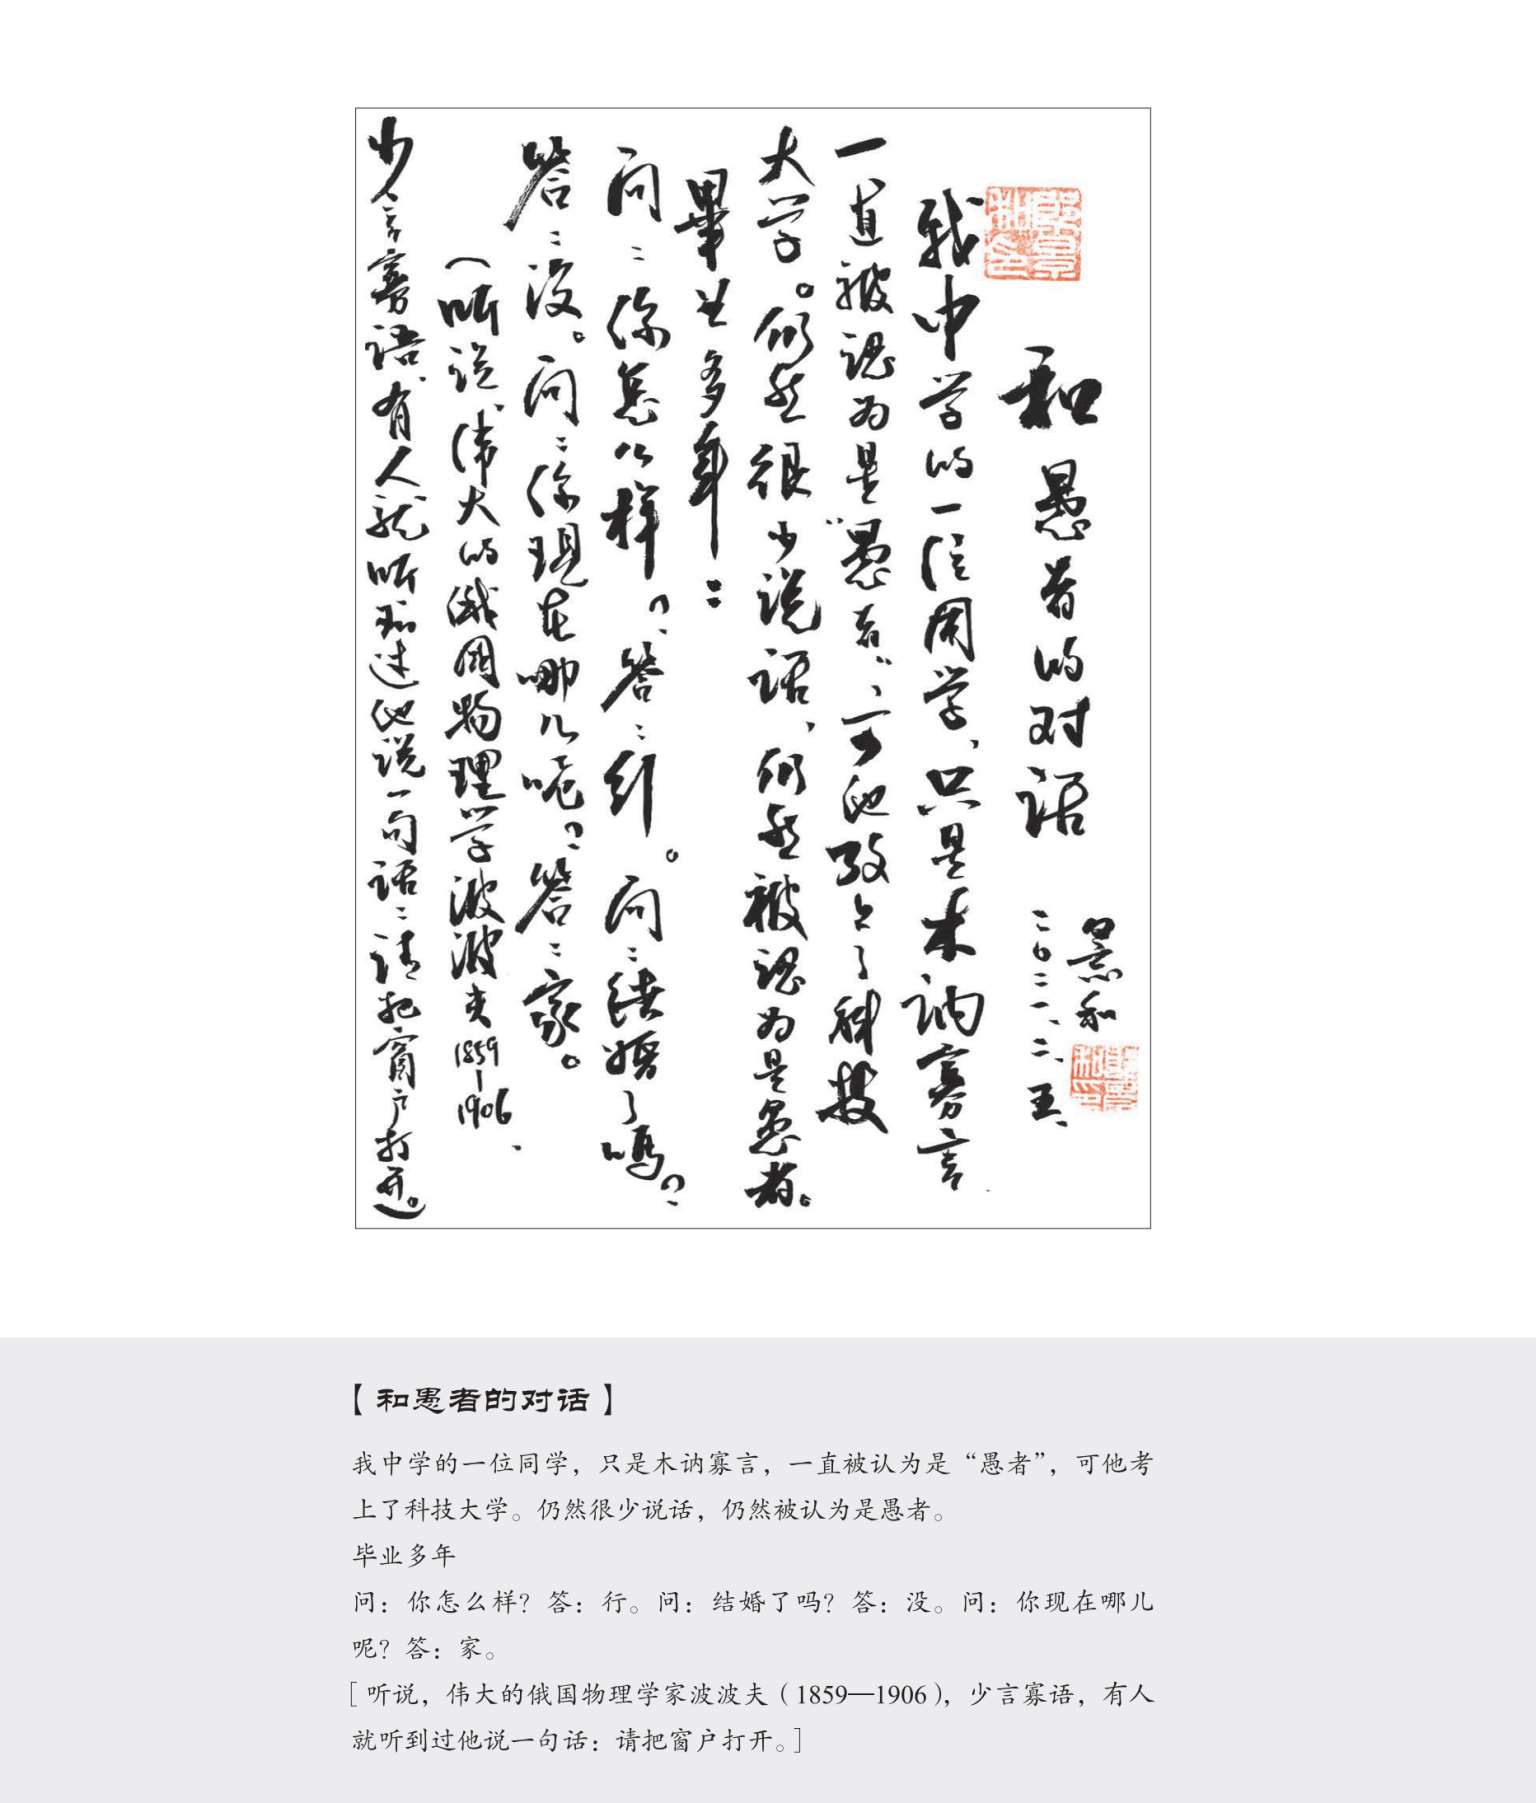 和愚者的对话
景和
二〇二一、二、五、
我中学的一位同学，只是木讷寡言
一直被认为是“愚者”，可他考上了科技
大学。仍然很少说话，仍然被认为是愚者。
畢业多年：
问：你怎么样？答：行。问：结婚了吗？
答：没。问：你现在哪儿呢？答：家。
（听说，伟大的俄国物理学波波夫1859—1906、
少言寡语，有人就听到过他说一句话：请把窗户打开。
【和愚者的对话】
我中学的一位同学，只是木讷寡言，一直被认为是“愚者”，可他考
上了科技大学。仍然很少说话，仍然被认为是愚者。
毕业多年
问：你怎么样？答：行。问：结婚了吗？答：没。问：你现在哪儿
呢？答：家。
[听说，伟大的俄国物理学家波波夫（1859—1906），少言寡语，有人
就听到过他说一句话：请把窗户打开。]